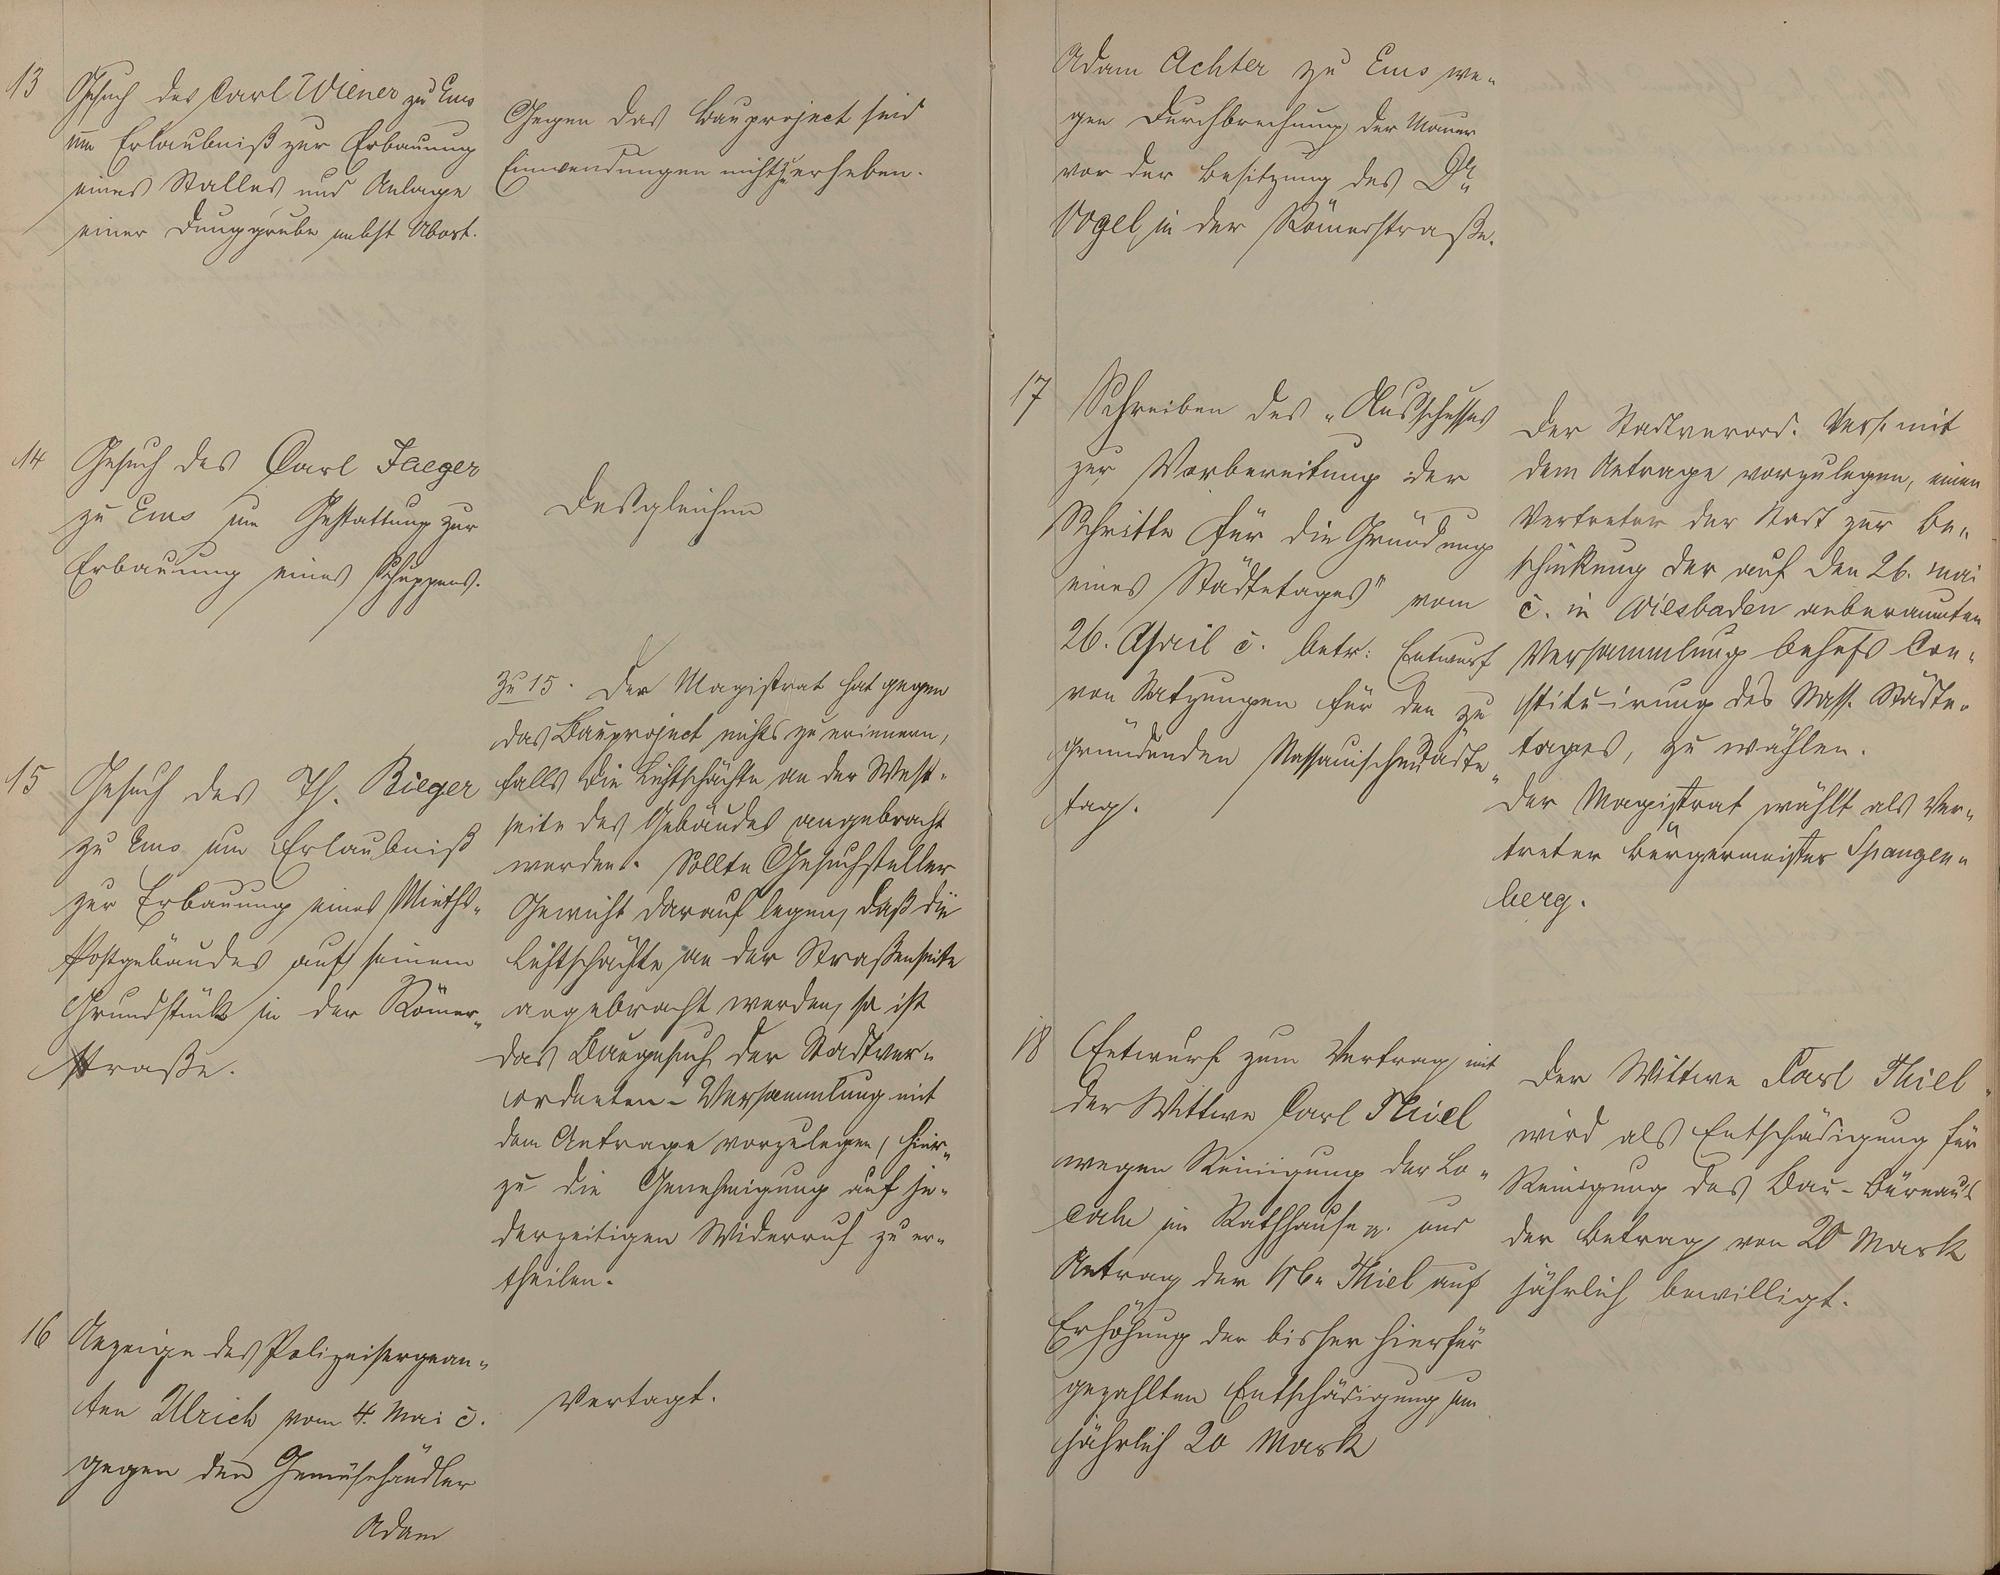 13
Gesuch des Carl Wiener zu Ems
um Erlaubniß zur Erbauung
eines Stalles und Anlage
einer Dunggrube nebst Abort.
Gegen das Bauproject sind
Einwendungen nicht zu erheben.
14
Gesuch des Carl Jaeger
zu Ems um Gestattung zur
Erbauung eines Schuppens.
Desgleichen
15
Gesuch des Th. Rieger
zu Ems um Erlaubniß
zur Erbauung eines Mieths-
Postgebäudes auf seinem
Grundstück in der Römer-
straße.
Zu 15. Der Magistrat hat gegen
das Bauproject nichts zu erinnern,
falls die Lichtschächte an der West-
seite des Gebäudes angebracht
werden. Sollte Gesuchsteller
Gewicht darauf legen, daß die
Lichtschächte an der Straßenseite
angebracht werden, so ist
das Baugesuch der Stadtver-
ordneten-Versammlung mit
dem Antrage vorzulegen, hier-
zu die Genehmigung auf je-
derzeitigen Widerruf zu er-
theilen.
16
Anzeige des Polizeisergean-
ten Ulrich vom 4. Mai c.
gegen den Gemüsehändler
Adam
Vertagt.
Adam Achter zu Ems we-
gen Durchbrechung der Mauer
vor der Besitzung des Dr.
Vogel in der Römerstraße.
17
Schreiben des "Ausschusses
zur Vorbereitung der
Schritte für die Gründung
eines Städtetages" vom
26. April c. betr: Entwurf
von Satzungen für den zu
gründenden Nassauischen Städte-
tag.
Der Stadtverord. Vers. mit
dem Antrage vorzulegen, einen
Vertreter der Stadt zur Be-
schickung der auf den 26. Mai
c. in Wiesbaden anberaumten
Versammlung behufs Con-
stituirung des Nass. Städte-
tages, zu wählen.
Der Magistrat wählt als Ver-
treter Bürgermeister Spangen-
berg.
18
Entwurf zum Vertrag mit
der Wittwe Carl Thiel
wegen Reinigung der Lo-
cale im Rathhause pp. und
Antrag der Wwe Thiel auf
Erhöhung der bisher hierfür
gezahlten Entschädigung um
jährlich 20 Mark
Der Wittwe Carl Thiel
wird als Entschädigung für
Reinigung des Bau-Büreaus
der Betrag von 20 Mark
jährlich bewilligt.